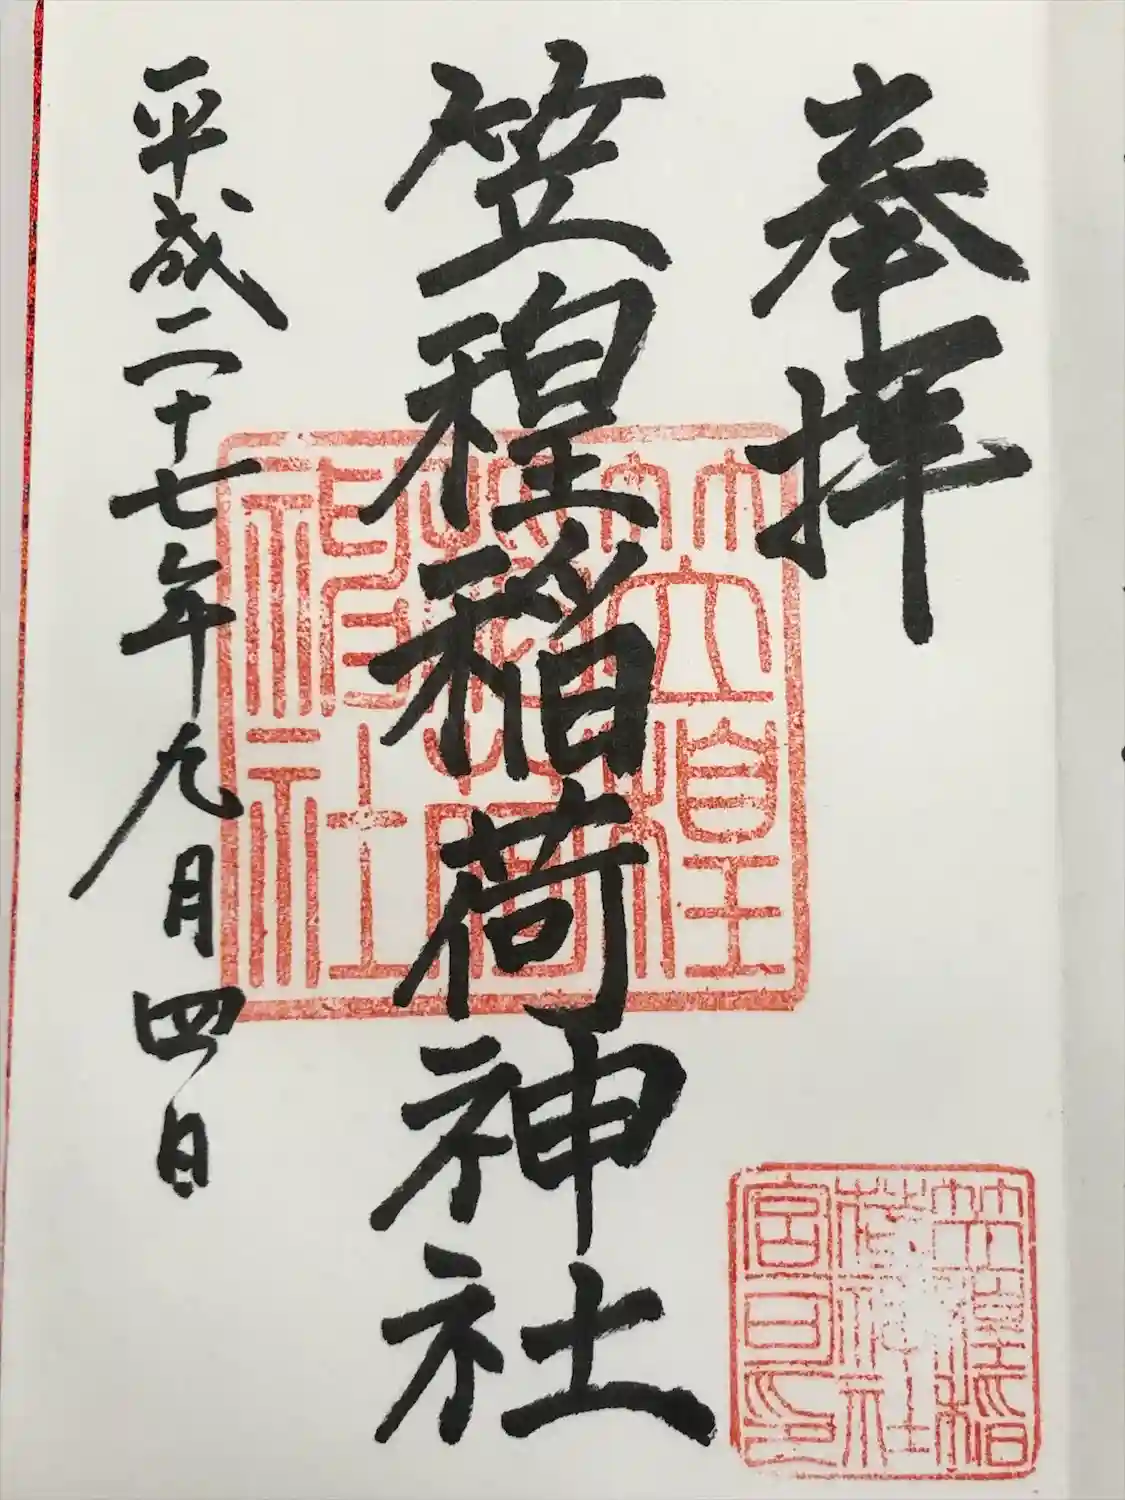 奉拝
笠䅣稲荷神社
平成二十七年九月四日
笠䅣
稲荷
神社
笠䅣稲
荷神社
宮司印